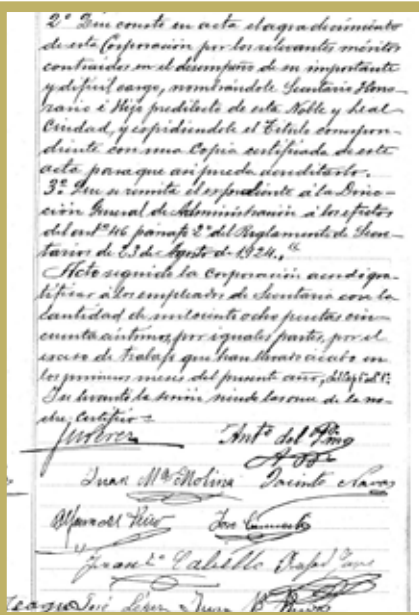 2º Que conste en acta el agradecimiento
de esta Corporación por los relevantes méritos
contraidos en el desempeño de su importante
y difícil cargo, nombrándole Secretario Hono-
rario é Hijo predilecto de esta Noble y Leal
Ciudad, y expidiendole el Título correspon-
diente con una Copia certificada de este
acta para que asi pueda acreditarlo.
3º Que se remita el expediente á la Direc-
ción General de Administración á los efectos
del artº 46 párrafº 2º del Reglamento de Secre-
tarios de 23 de Agosto de 1924.,"
Acto seguido la Corporación acordó gra-
tificar á los empleados de Secretaria con la
cantidad de mil ciento ocho pesetas cin-
cuenta céntimos, por iguales partes, por el
exceso de trabajo que han llevado á cabo en
los primeros meses del presente año,
Se levantó la sesión siendo las once de la no-
che, certifico =
Antº del Pino
Juan Mª Molina Jacinto Navas
José
Juan Cabello Rafael
José López Juan